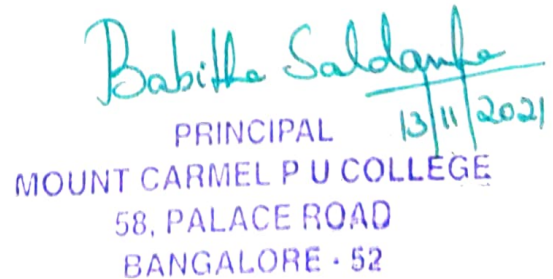 Babitha Saldanha
13/11/2021
PRINCIPAL
MOUNT CARMEL P U COLLEGE
58, PALACE ROAD
BANGALORE - 52